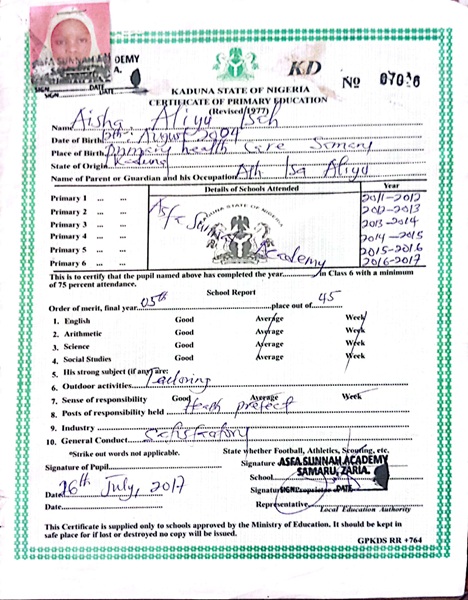 ASFA SUNNAH ACADEMY
ZARIA.
SIGN DATE
KD
No 07036
KADUNA STATE OF NIGERIA
CERTIFICATE OF PRIMARY EDUCATION
(Revised 1977)
Name Aisha Aliyu
Date of Birth August 2004
Place of Birth Primary health Care Samaru
State of Origin Kaduna
Name of Parent or Guardian and his Occupation Alh Isa Aliyu
Details of Schools Attended Year
Primary 1 ... ... 2011-2012
Primary 2 ... ... 2012-2013
Primary 3 ... ... 2013-2014
Primary 4 ... ... 2014-2015
Primary 5 ... ... 2015-2016
Primary 6 ... ... 2016-2017
Asfa Sunnah Academy
This is to certify that the pupil named above has completed the year in Class 6 with a minimum
of 75 percent attendance.
School Report
Order of merit, final year. 05th place out of 45
1. English Good Average Week
2. Arithmetic Good Average Week
3. Science Good Average Week
4. Social Studies Good Average Week
5. His strong subject (if any) are:
6. Outdoor activities
7. Sense of responsibility Good Average Week
8. Posts of responsibility held Health prefect
9. Industry
10. General Conduct Satisfactory
*Strike out words not applicable. State whether Football, Athletics, Scouting, etc.
Signature of Pupil Signature
ASFA SUNNAH ACADEMY
SAMARU, ZARIA.
School
SIGN DATE
Date 26th July, 2017 Signature
Date Representative
Local Education Authority
This Certificate is supplied only to schools approved by the Ministry of Education. It should be kept in
safe place for if lost or destroyed no copy will be issued.
GPKDS RR +764